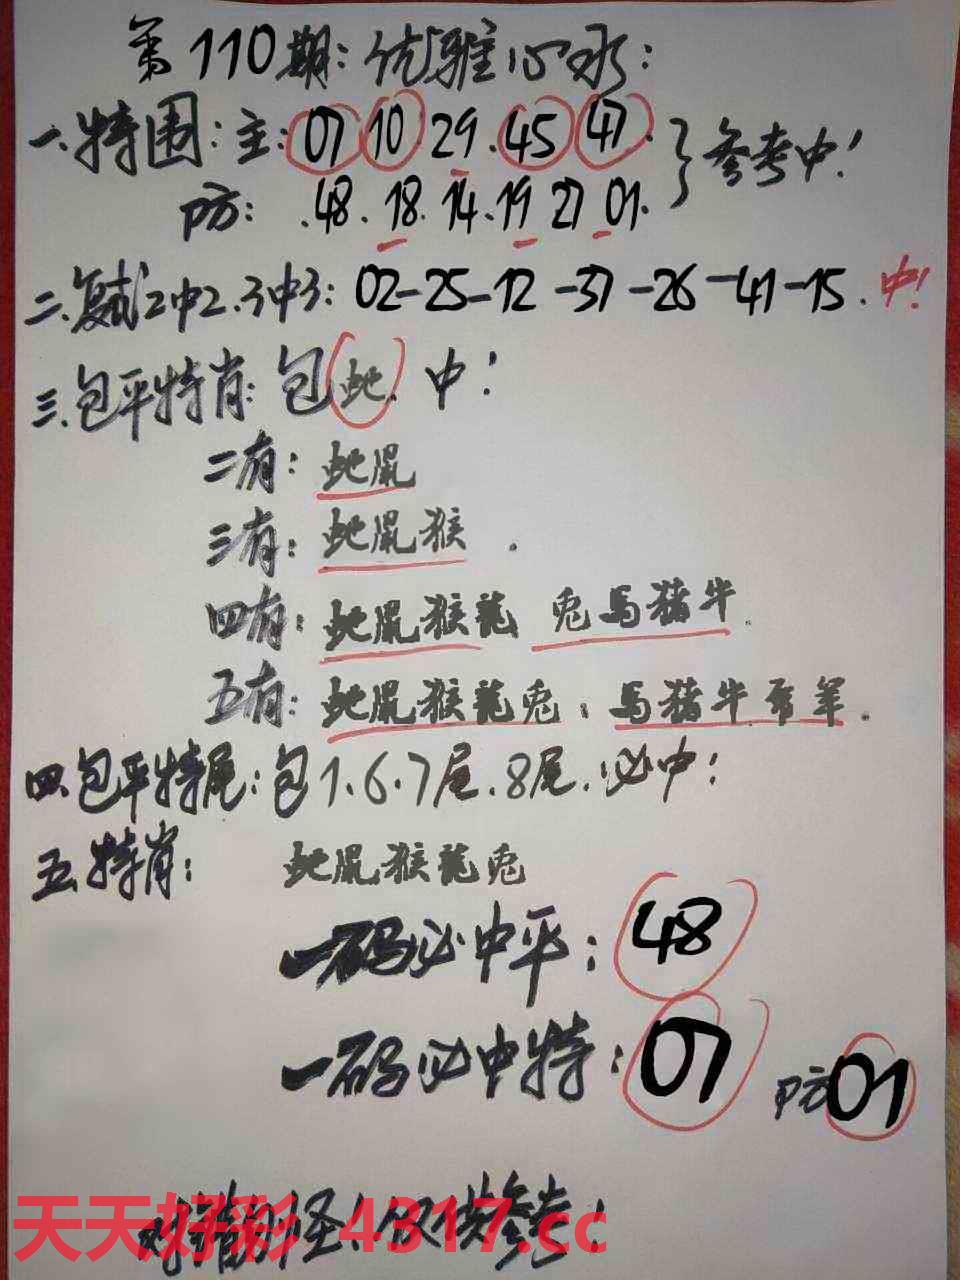 第110期：优雅心水：
一.特围：主：07 10 29.45 47.}参考中！
防：.48.18.14.19 27 01.
二.复式2中2.3中3：02-25-12-37-26-41-15.中！
三.包平特肖：包蛇.中！
二有：蛇鼠
三有：蛇鼠猴.
四有：蛇鼠猴龍 兔马猪牛.
五有：蛇鼠猴龍兔：马猪牛 羊.
四.包平特尾：包1.6.7尾.8尾.必中！
五.特肖：蛇鼠猴龍兔
一码必中平：48
一码必中特：07 防01
对错别怪！仅供参考！
天天好彩 4317.cc